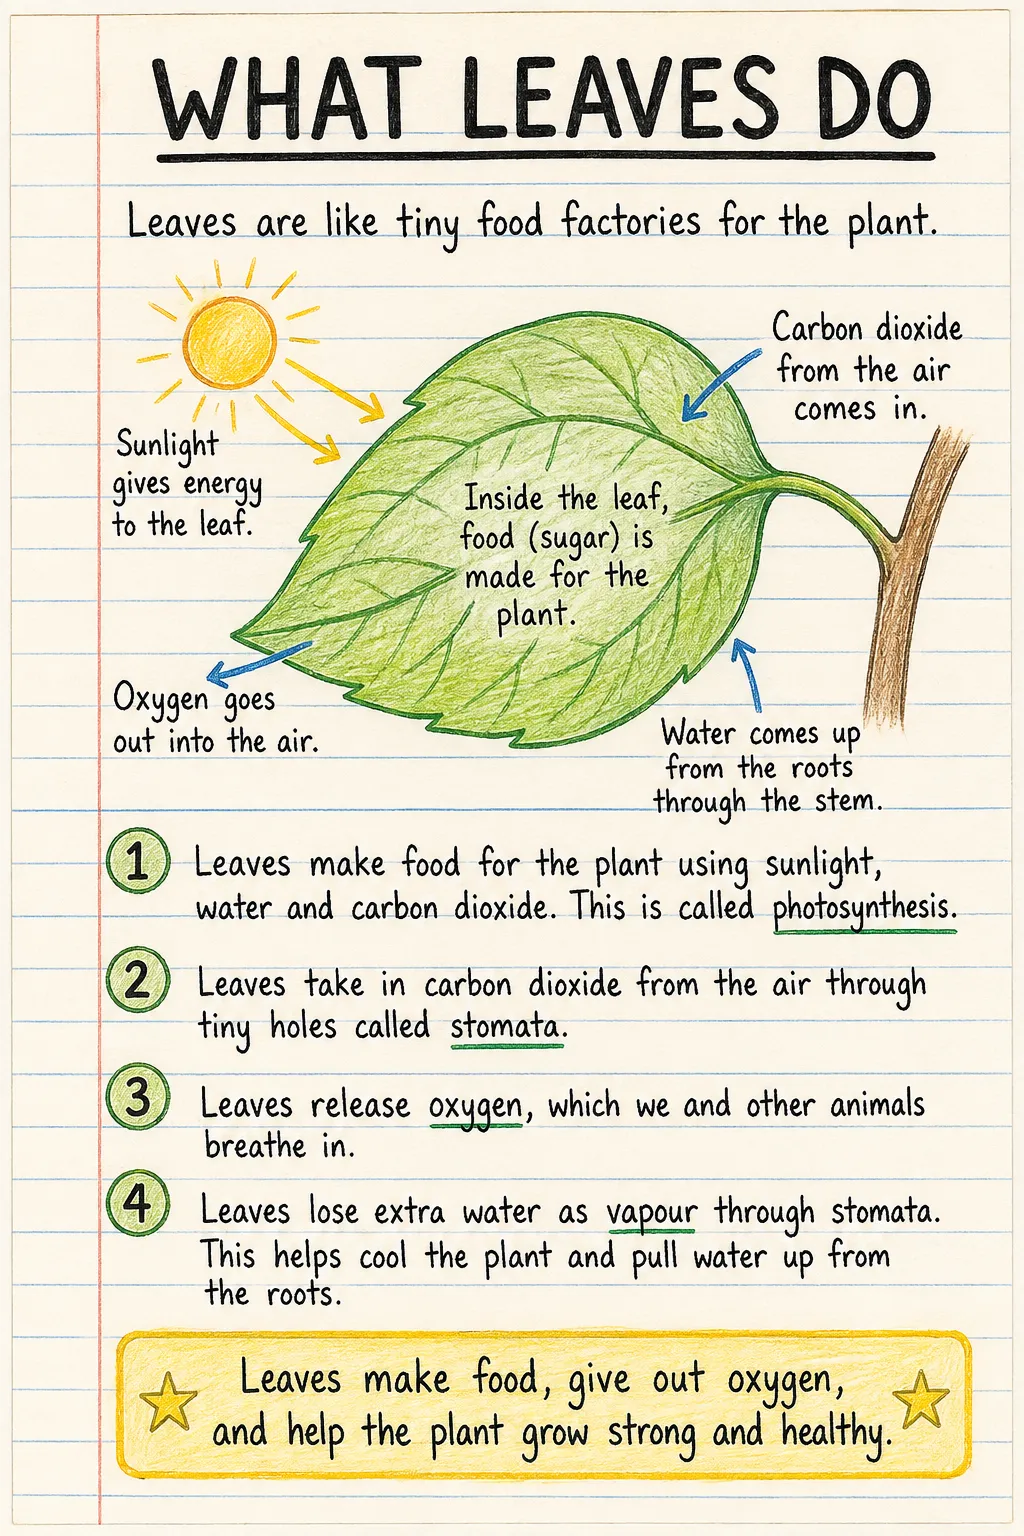 WHAT LEAVES DO
Leaves are like tiny food factories for the plant.
Carbon dioxide
from the air
comes in.
Sunlight
gives energy
to the leaf.
Inside the leaf,
food (sugar) is
made for the
plant.
Oxygen goes
out into the air.
Water comes up
from the roots
through the stem.
1
Leaves make food for the plant using sunlight,
water and carbon dioxide. This is called photosynthesis.
2
Leaves take in carbon dioxide from the air through
tiny holes called stomata.
3
Leaves release oxygen, which we and other animals
breathe in.
4
Leaves lose extra water as vapour through stomata.
This helps cool the plant and pull water up from
the roots.
Leaves make food, give out oxygen,
and help the plant grow strong and healthy.